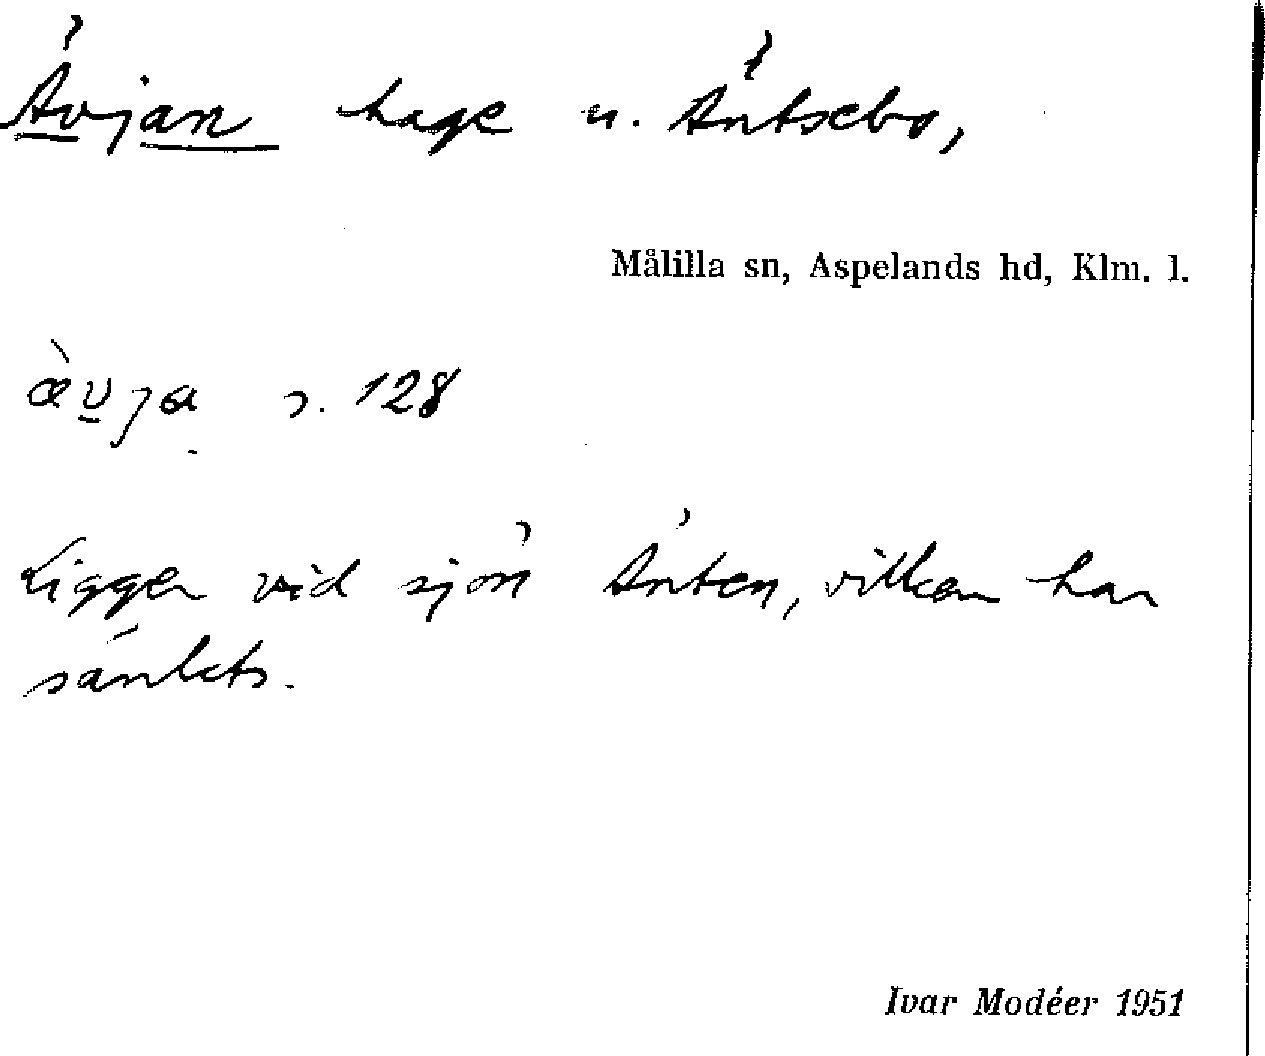 Ävjan hage u. Äntsebo,
Målilla sn, Aspelands hd, Klm. l.
æ̀vja s. 128
Ligger vid sjön Änten, vilken har
sänkts.
Ivar Modéer 1951